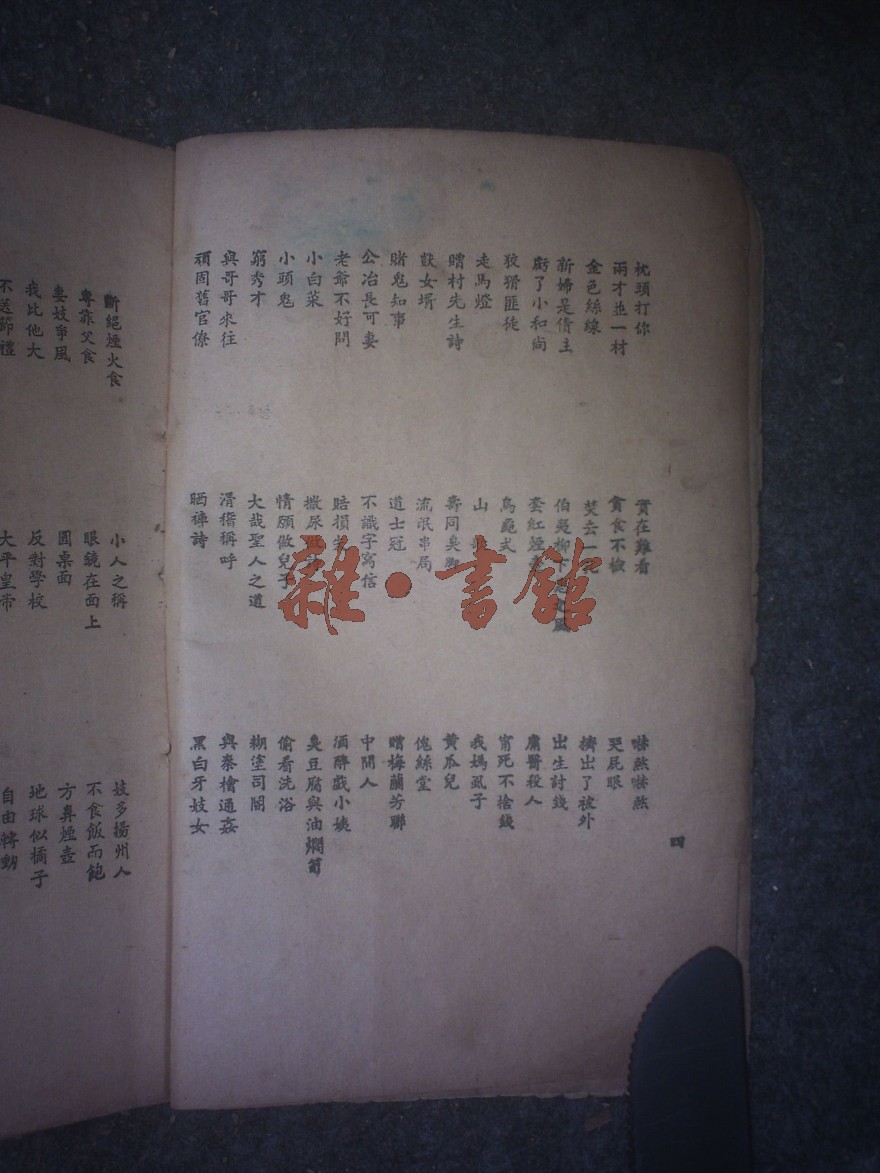 枕頭打你
兩才並一材
金色絲線
新婦是債主
虧了小和尚
狡猾匪徒
走馬燈
贈村先生詩
獃女壻
賭鬼知事
公冶長可妻
老爺不好問
小白菜
小頭鬼
窮秀才
與哥哥來往
頑固舊官僚
實在難看
貪食不檢
焚去一
伯夷柳下
套紅煙
烏龜式
山
壽同臭腳
流氓串局
道士冠
不識字寫信
賠損
撒尿做
情願做兒子
大哉聖人之道
滑稽稱呼
晒褲詩
哭屁眼
擠出了被外
出生討錢
庸醫殺人
甯死不捨錢
我媽虱子
黃瓜兒
傀絲堂
贈梅蘭芳聯
中間人
酒醉戲小姨
臭豆腐與油燜筍
偷看洗浴
糊塗司閽
與秦檜通姦
黑白牙妓女
四
斷絕煙火食
專靠父食
妻妓爭風
我比他大
不送節禮
小人之稱
眼鏡在面上
圓桌面
反對學校
大平皇帝
妓多揚州人
不食飯而飽
方鼻煙壺
地球似橘子
自由轉動
雜·書館